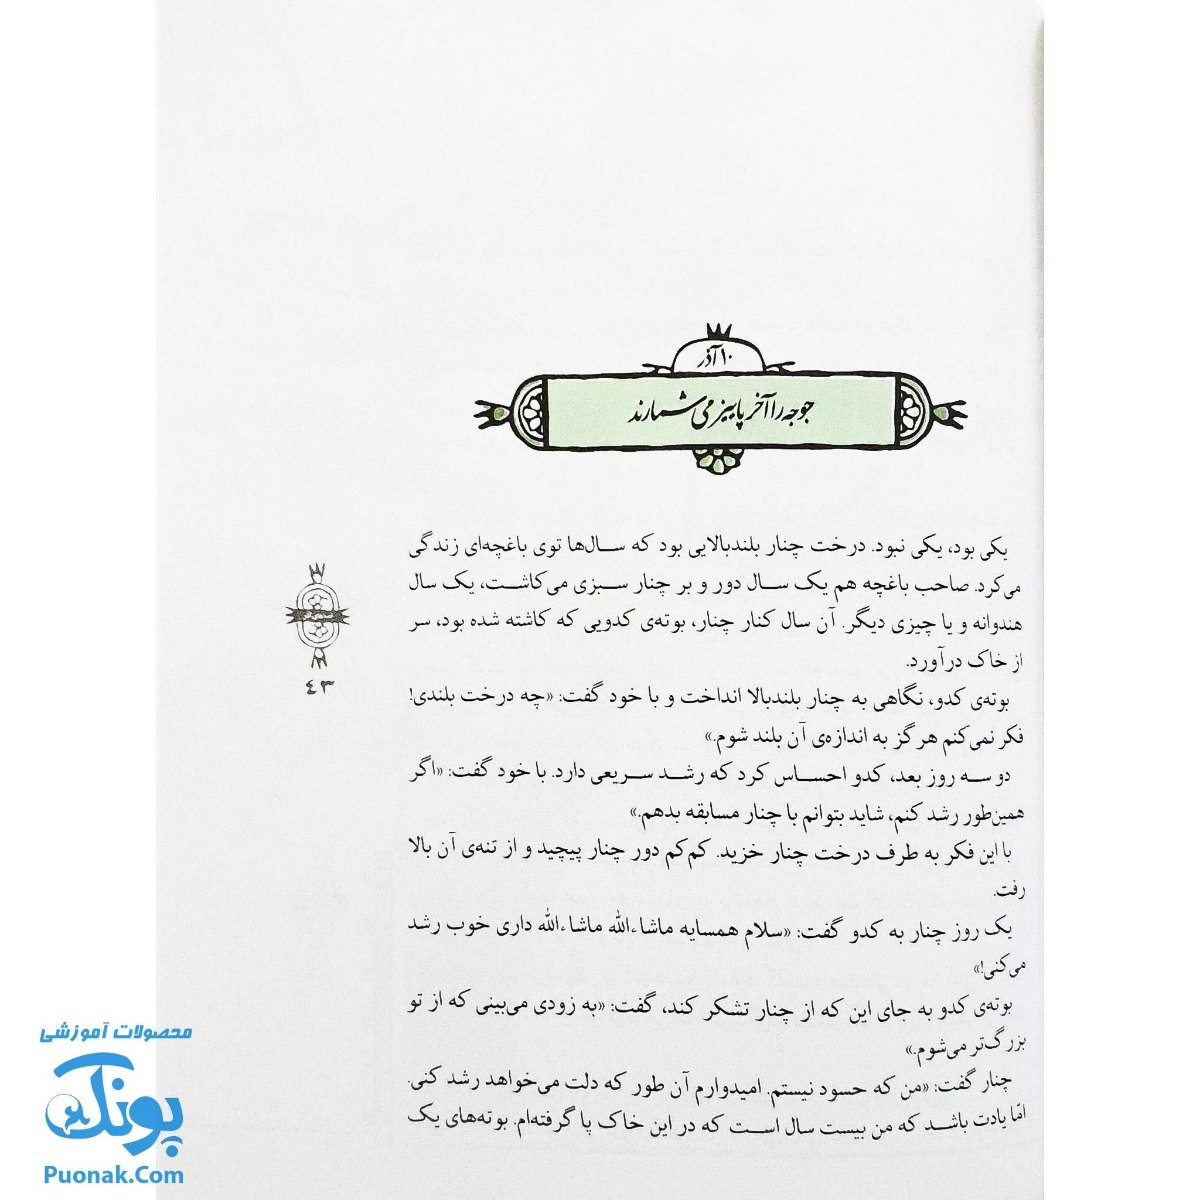 ۱۰ آذر
جوجه را آخر پاییز می‌شمارند
یکی بود، یکی نبود. درخت چنار بلندبالایی بود که سال‌ها توی باغچه‌ای زندگی
می‌کرد. صاحب باغچه هم یک سال دور و بر چنار سبزی می‌کاشت، یک سال
هندوانه و یا چیزی دیگر. آن سال کنار چنار، بوته‌ی کدویی که کاشته شده بود، سر
از خاک درآورد.
بوته‌ی کدو، نگاهی به چنار بلندبالا انداخت و با خود گفت: «چه درخت بلندی!
فکر نمی‌کنم هرگز به اندازه‌ی آن بلند شوم.»
دو سه روز بعد، کدو احساس کرد که رشد سریعی دارد. با خود گفت: «اگر
همین‌طور رشد کنم، شاید بتوانم با چنار مسابقه بدهم.»
با این فکر به طرف درخت چنار خزید. کم‌کم دور چنار پیچید و از تنه‌ی آن بالا
رفت.
یک روز چنار به کدو گفت: «سلام همسایه ماشاءالله ماشاءالله داری خوب رشد
می‌کنی!»
بوته‌ی کدو به جای این که از چنار تشکر کند، گفت: «به زودی می‌بینی که از تو
بزرگ‌تر می‌شوم.»
چنار گفت: «من که حسود نیستم. امیدوارم آن طور که دلت می‌خواهد رشد کنی.
امّا یادت باشد که من بیست سال است که در این خاک پا گرفته‌ام. بوته‌های یک
۴۳
محصولات آموزشی
پونک
Puonak.Com